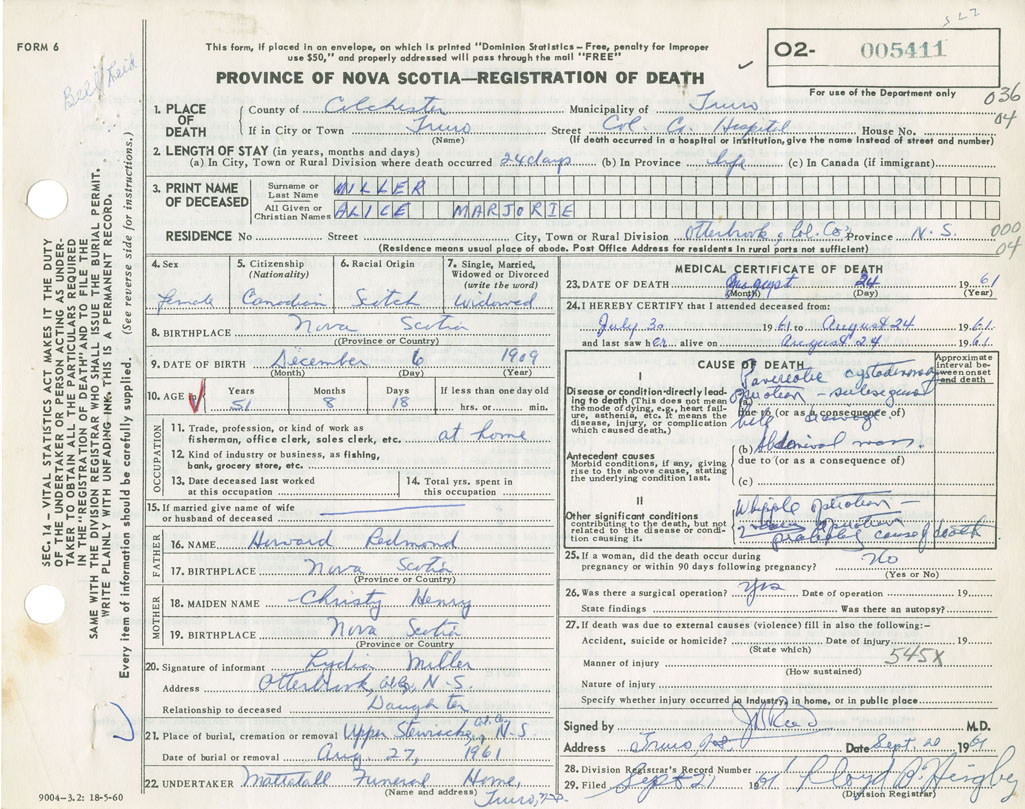 522
FORM 6
This form, if placed in an envelope, on which is printed "Dominion Statistics—Free, penalty for improper
use $50," and properly addressed will pass through the mail "FREE"
O2- 005411
For use of the Department only
PROVINCE OF NOVA SCOTIA—REGISTRATION OF DEATH
036
04
1. PLACE OF DEATH
County of Colchester Municipality of Truro
If in City or Town Truro Street Col. Co. Hospital House No.
(Name) (If death occurred in a hospital or institution, give the name instead of street and number)
2. LENGTH OF STAY (in years, months and days)
(a) In City, Town or Rural Division where death occurred 24 days (b) In Province life (c) In Canada (if immigrant)
3. PRINT NAME OF DECEASED
Surname or Last Name MILLER
All Given or Christian Names ALICE MARJORIE
RESIDENCE No Street City, Town or Rural Division Otterbrook, Col. Co. Province N. S.
000
04
(Residence means usual place of abode. Post Office Address for residents in rural parts not sufficient)
4. Sex
female
5. Citizenship (Nationality)
Canadian
6. Racial Origin
Scotch
7. Single, Married, Widowed or Divorced (write the word)
Widowed
8. BIRTHPLACE Nova Scotia
(Province or Country)
9. DATE OF BIRTH December 6 1909
(Month) (Day) (Year)
10. AGE
Years Months Days If less than one day old
51 8 18 hrs. or min.
OCCUPATION
11. Trade, profession, or kind of work as
fisherman, office clerk, sales clerk, etc. at home
12. Kind of industry or business, as fishing,
bank, grocery store, etc.
13. Date deceased last worked
at this occupation
14. Total yrs. spent in
this occupation
15. If married give name of wife
or husband of deceased
FATHER
16. NAME Howard Redmond
17. BIRTHPLACE Nova Scotia
(Province or Country)
MOTHER
18. MAIDEN NAME Christy Henry
19. BIRTHPLACE Nova Scotia
(Province or Country
20. Signature of informant Lydia Miller
Address Otterbrook, N. S.
Relationship to deceased Daughter
21. Place of burial, cremation or removal Upper Stewiacke, Col. Co. N. S.
Date of burial or removal Aug. 27, 1961
22. UNDERTAKER Mattatall Funeral Home,
(Name and address) Truro, N.S.
9004-3.2: 18-5-60
MEDICAL CERTIFICATE OF DEATH
23. DATE OF DEATH August 24 1961
(Month) (Day) (Year)
24. I HEREBY CERTIFY that I attended deceased from:
July 30 1961 to August 24 1961
and last saw her alive on August 24 1961
CAUSE OF DEATH
Approximate interval between onset and death
I
Disease or condition directly leading to death (This does not mean the mode of dying, e.g., heart failure, asthenia, etc. It means the disease, injury, or complication which caused death.)
(a) Pancreatic cystadenoma
due to (or as a consequence of)
(b) Abdominal mass
due to (or as a consequence of)
(c)
Antecedent causes
Morbid conditions, if any, giving rise to the above cause, stating the underlying condition last.
II
Other significant conditions
contributing to the death, but not related to the disease or condition causing it.
Whipple operation —
operation
probably cause of death
25. If a woman, did the death occur during
pregnancy or within 90 days following pregnancy? No
(Yes or No)
26. Was there a surgical operation? yes Date of operation 19
State findings Was there an autopsy?
27. If death was due to external causes (violence) fill in also the following:—
Accident, suicide or homicide? Date of injury 19
(State which)
545X
Manner of injury
(How sustained)
Nature of injury
Specify whether injury occurred in industry, in home, or in public place
Signed by M.D.
Address Truro, N.S. Date Sept. 20 1961
28. Division Registrar's Record Number
29. Filed Sept 21 1961 Lloyd B.
(Division Registrar)
SEC. 14—VITAL STATISTICS ACT MAKES IT THE DUTY
OF THE UNDERTAKER OR PERSON ACTING AS UNDER-
TAKER TO OBTAIN ALL THE PARTICULARS REQUIRED
IN THE "REGISTRATION OF DEATH" AND TO FILE THE
SAME WITH THE DIVISION REGISTRAR WHO SHALL ISSUE THE BURIAL PERMIT.
WRITE PLAINLY WITH UNFADING INK. THIS IS A PERMANENT RECORD.
Every item of information should be carefully supplied. (See reverse side for instructions.)